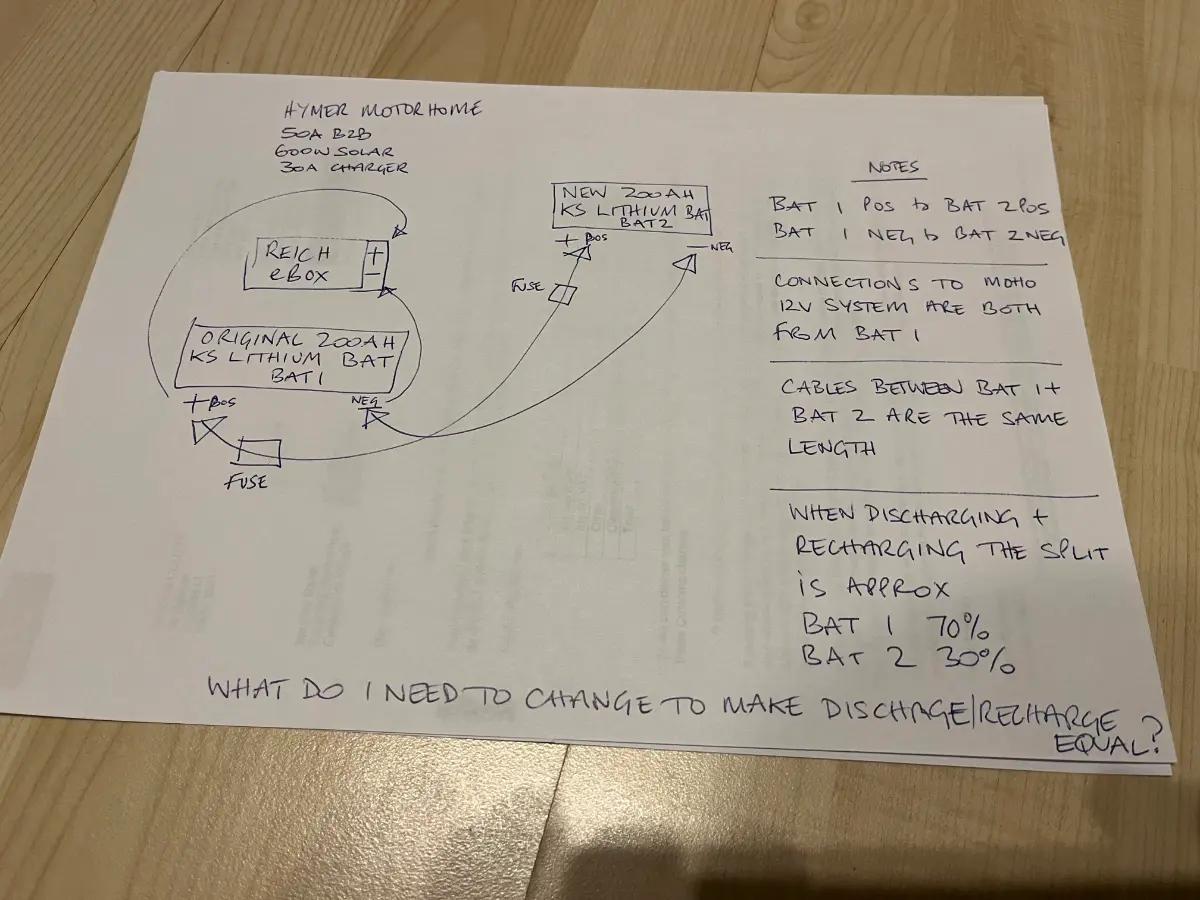 HYMER MOTORHOME
50A B2B
600W SOLAR
30A CHARGER
REICH
eBOX
+
−
ORIGINAL 200AH
KS LITHIUM BAT
BAT1
+ POS
NEG
FUSE
NEW 200AH
KS LITHIUM BAT
BAT2
+ POS
− NEG
FUSE
NOTES
BAT 1 POS to BAT 2 POS
BAT 1 NEG to BAT 2 NEG
CONNECTIONS TO MOHO
12V SYSTEM ARE BOTH
FROM BAT 1
CABLES BETWEEN BAT 1 +
BAT 2 ARE THE SAME
LENGTH
WHEN DISCHARGING +
RECHARGING THE SPLIT
is APPROX
BAT 1 70%
BAT 2 30%
WHAT DO I NEED TO CHANGE TO MAKE DISCHAGE/RECHARGE
EQUAL?